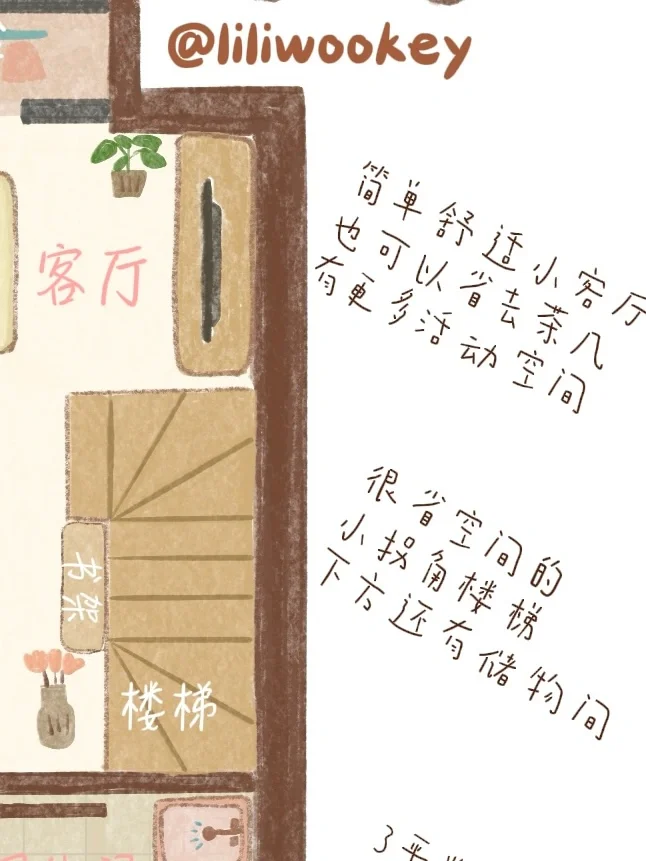 @liliwookey
简单舒适小客厅
也可以省去茶几
有更多活动空间
客厅
很省空间的
小拐角楼梯
下方还有储物间
书架
楼梯